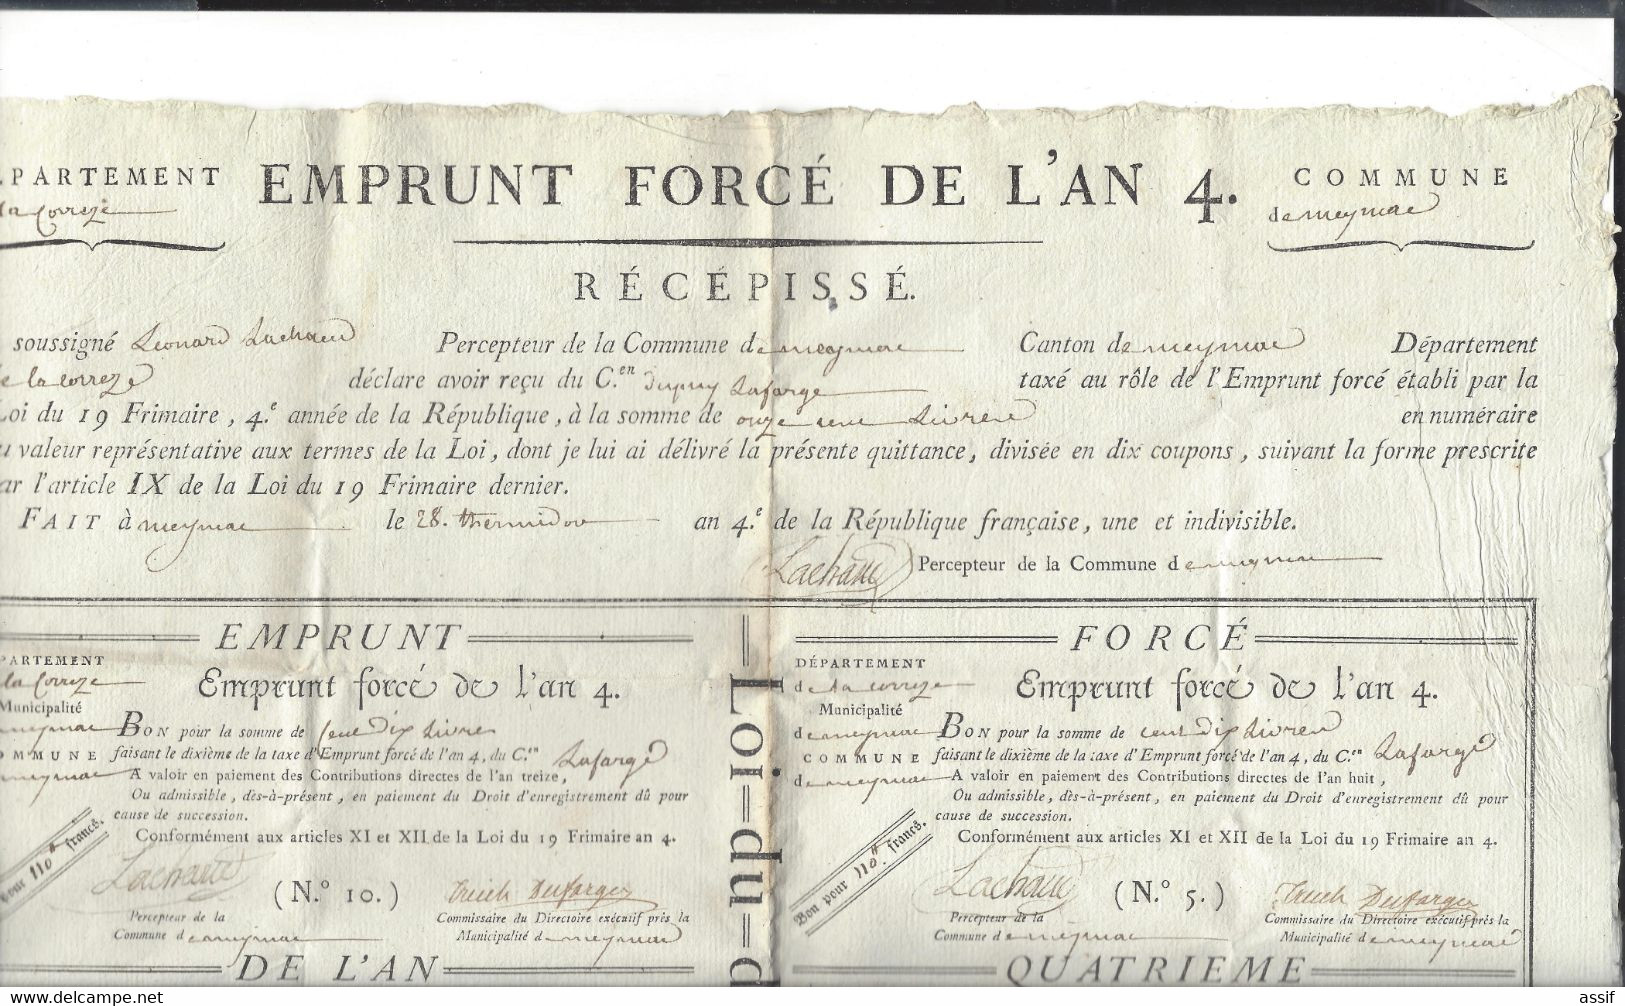 EPARTEMENT
la Correze
EMPRUNT FORCÉ DE L'AN 4.
COMMUNE
de meymac
RÉCÉPISSÉ.
soussigné Léonard Lachaud Percepteur de la Commune de meymac Canton de meymac Département
de la correze déclare avoir reçu du C.en Dupuy Lafarge taxé au rôle de l'Emprunt forcé établi par la
Loi du 19 Frimaire, 4.e année de la République, à la somme de onze cent Livres en numéraire
u valeur représentative aux termes de la Loi, dont je lui ai délivré la présente quittance, divisée en dix coupons, suivant la forme prescrite
ar l'article IX de la Loi du 19 Frimaire dernier.
FAIT à meymac le 28. thermidor an 4.e de la République française, une et indivisible.
Lachaud Percepteur de la Commune de meymac
EMPRUNT
PARTEMENT
la Correze
Municipalité
meymac
OMMUNE
meymac
Emprunt forcé de l'an 4.
BON pour la somme de Cent Dix Livres
faisant le dixième de la taxe d'Emprunt forcé de l'an 4, du C.en Lafarge
A valoir en paiement des Contributions directes de l'an treize,
Ou admissible, dès-à-présent, en paiement du Droit d'enregistrement dû pour
cause de succession.
Conformément aux articles XI et XII de la Loi du 19 Frimaire an 4.
pour 110 francs.
Lachaud
(N.° 10.)
Percepteur de la
Commune de meymac
Commissaire du Directoire exécutif près la
Municipalité de meymac
DE L'AN
Loi-du-d
FORCÉ
DÉPARTEMENT
de la correze
Municipalité
de meymac
COMMUNE
de meymac
Emprunt forcé de l'an 4.
BON pour la somme de cent Dix Livres
faisant le dixième de la taxe d'Emprunt forcé de l'an 4, du C.en Lafarge
A valoir en paiement des Contributions directes de l'an huit,
Ou admissible, dès-à-présent, en paiement du Droit d'enregistrement dû pour
cause de succession.
Conformément aux articles XI et XII de la Loi du 19 Frimaire an 4.
Bon pour 110 francs.
Lachaud
(N.° 5.)
Percepteur de la
Commune de meymac
Commissaire du Directoire exécutif près la
Municipalité de meymac
QUATRIEME
www.delcampe.net
assif